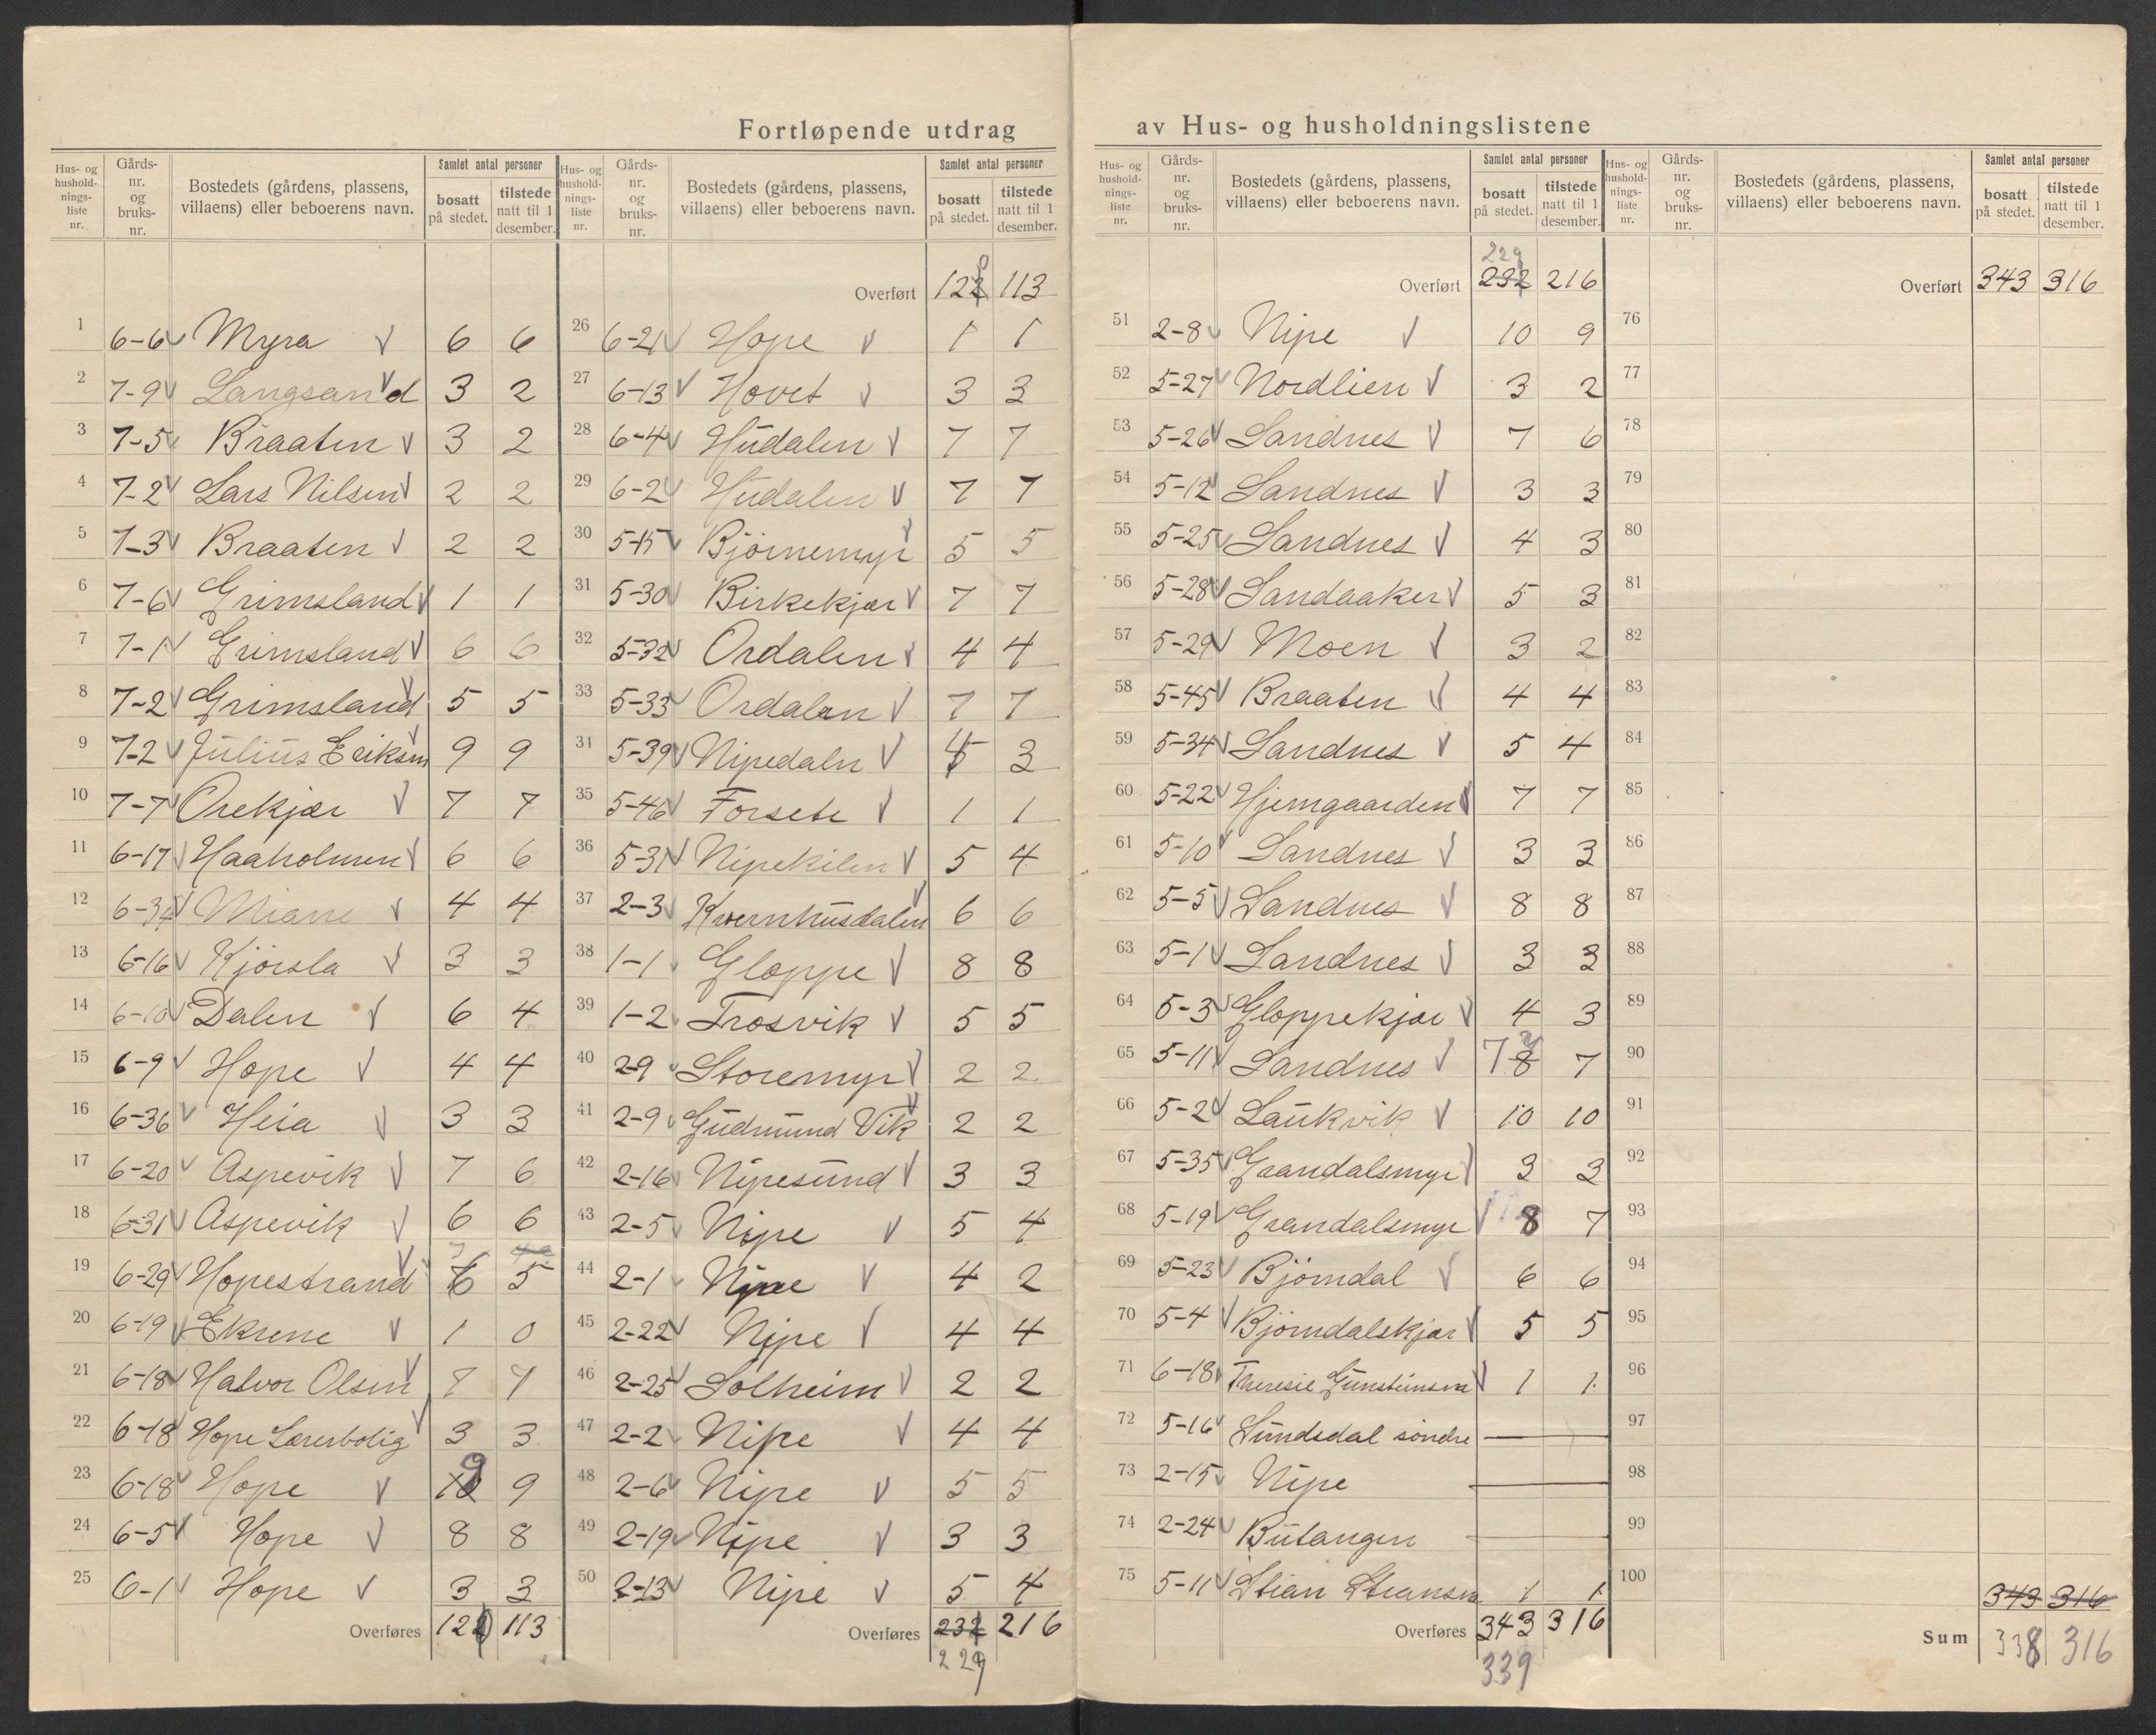 Fortløpende utdrag av Hus- og husholdningslistene
Hus- og hushold-nings-liste nr. Gårds-nr. og bruks-nr. Bostedets (gårdens, plassens, villaens) eller beboerens navn. Samlet antal personer bosatt på stedet. tilstede natt til 1 desember.
1 6-6 Myra 6 6
2 7-9 Langsand 3 2
3 7-5 Braaten 3 2
4 7-2 Lars Nilsen 2 2
5 7-3 Braaten 2 2
6 7-6 Grimsland 1 1
7 7-1 Grimsland 6 6
8 7-2 Grimsland 5 5
9 7-2 Julius Eriksen 9 9
10 7-7 Orekjær 7 7
11 6-17 Haaholmen 6 6
12 6-34 4 4
13 6-16 Kjörsla 3 3
14 6-10 Dalen 6 4
15 6-9 Hope 4 4
16 6-36 Heia 3 3
17 6-20 Aspevik 7 6
18 6-31 Aspevik 6 6
19 6-29 Hopestrand 6 5
20 6-19 Ekrene 1 0
21 6-18 Halvor Olsen 7 7
22 6-18 Hope Lærerbolig 3 3
23 6-18 Hope 9 9
24 6-5 Hope 8 8
25 6-1 Hope 3 3
Overføres 113
Hus- og hushold-nings-liste nr. Gårds-nr. og bruks-nr. Bostedets (gårdens, plassens, villaens) eller beboerens navn. Samlet antal personer bosatt på stedet. tilstede natt til 1 desember.
Overført 113
26 6-21 Hope 1 1
27 6-13 Hovet 3 3
28 6-4 Hudalen 7 7
29 6-2 Hudalen 7 7
30 5-15 Bjørnemyr 5 5
31 5-30 Birkekjær 7 7
32 5-32 Ordalen 4 4
33 5-33 Ordalen 7 7
31 5-39 Nipedaln 3
35 5-46 Forsete 1 1
36 5-31 Nipekilen 5 4
37 2-3 Kvernhusdalen 6 6
38 1-1 Gloppe 8 8
39 1-2 Trosvik 5 5
40 2-9 Storemyr 2 2
41 2-9 Gudmund Vik 2 2
42 2-16 Nipesund 3 3
43 2-5 Nipe 5 4
44 2-1 Nipe 4 2
45 2-22 Nipe 4 4
46 2-25 Solheim 2 2
47 2-2 Nipe 4 4
48 2-6 Nipe 5 5
49 2-19 Nipe 3 3
50 2-13 Nipe 5 4
Overføres 232 216
229
Hus- og hushold-nings-liste nr. Gårds-nr. og bruks-nr. Bostedets (gårdens, plassens, villaens) eller beboerens navn. Samlet antal personer bosatt på stedet. tilstede natt til 1 desember.
229
Overført 232 216
51 2-8 Nipe 10 9
52 5-27 Nordlien 3 2
53 5-26 Sandnes 7 6
54 5-12 Sandnes 3 3
55 5-25 Sandnes 4 3
56 5-28 Sandaaker 5 3
57 5-29 Moen 3 2
58 5-45 Braaten 4 4
59 5-34 Sandnes 5 4
60 5-22 Hjemgaarden 7 7
61 5-10 Sandnes 3 3
62 5-5 Sandnes 8 8
63 5-1 Sandnes 3 3
64 5-3 Gloppekjær 4 3
65 5-11 Sandnes 7 8 7
66 5-2 Laukvik 10 10
67 5-35 Grandalsmyr 3 3
68 5-19 Grandalsmyr 8 7
69 5-23 Bjørndal 6 6
70 5-4 Bjørndalskjær 5 5
71 6-18 Theresie 1 1
72 5-16 Sundsdal søndre —
73 2-15 Nipe —
74 2-24 Butangen —
75 5-11 Stian 1 1
Overføres 343 316
339
Hus- og hushold-nings-liste nr. Gårds-nr. og bruks-nr. Bostedets (gårdens, plassens, villaens) eller beboerens navn. Samlet antal personer bosatt på stedet. tilstede natt til 1 desember.
Overført 343 316
76
77
78
79
80
81
82
83
84
85
86
87
88
89
90
91
92
93
94
95
96
97
98
99
100
343 316
Sum 338 316